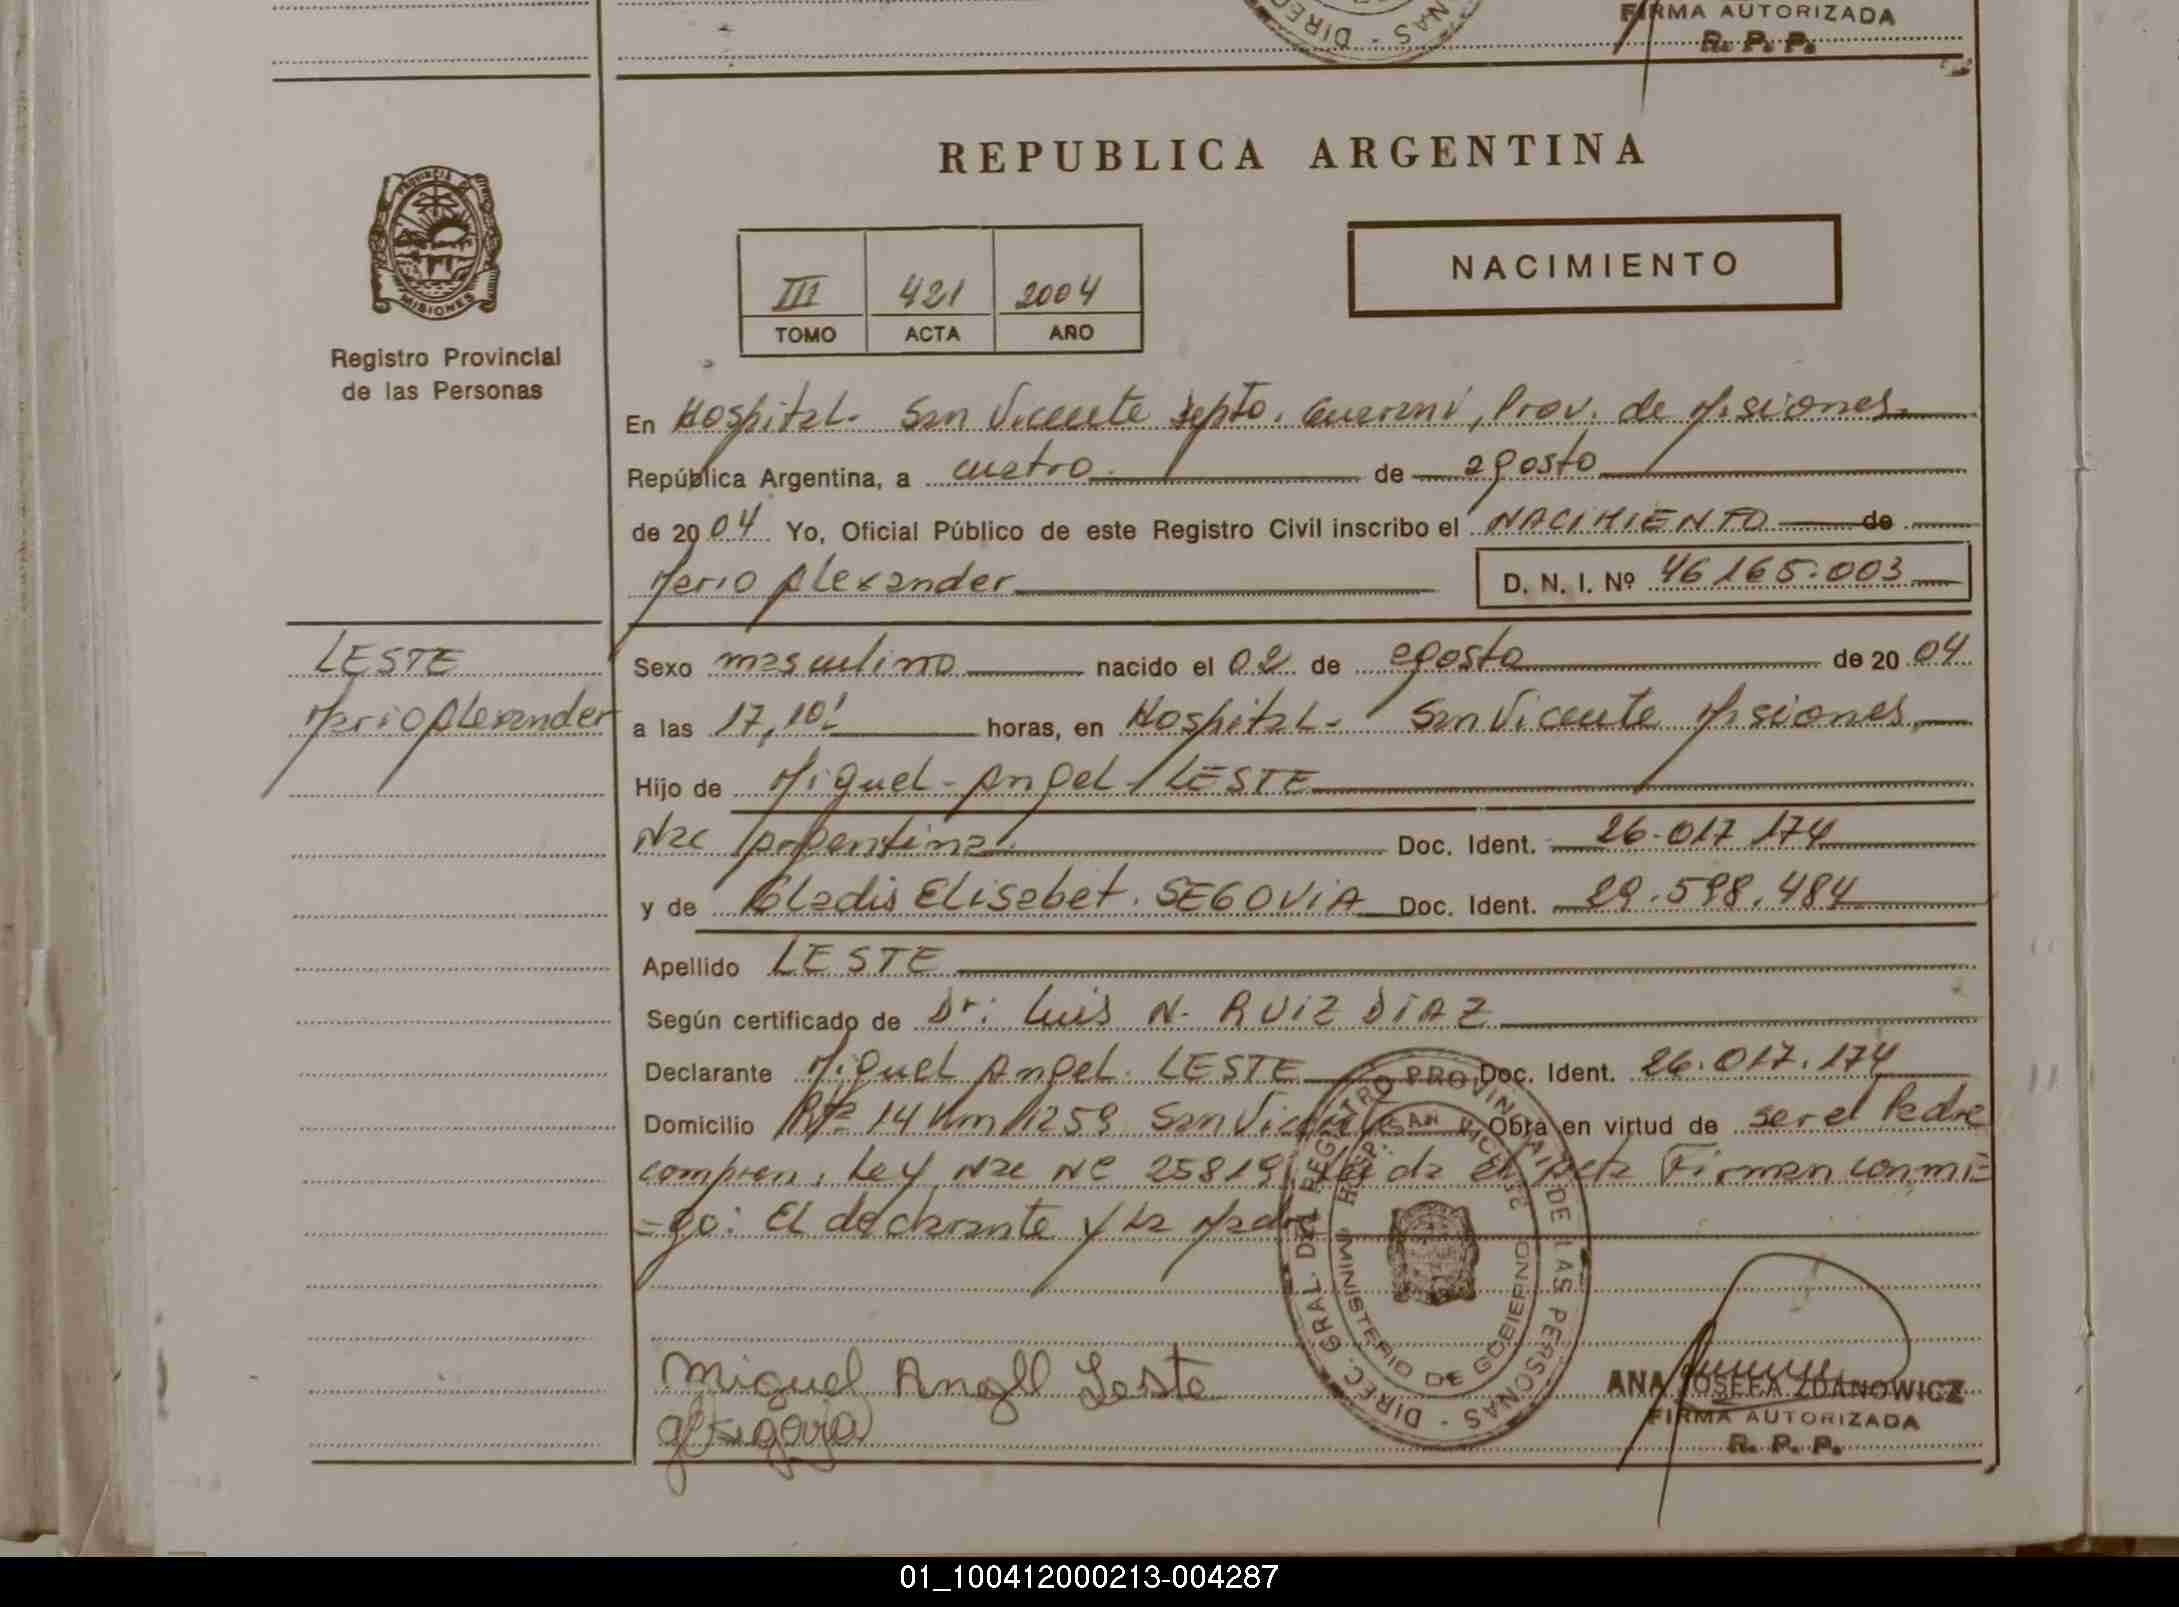 FIRMA AUTORIZADA
R. P. P.
REPUBLICA ARGENTINA
PROVINCIA DE
MISIONES
Registro Provincial
de las Personas
III 421 2004
TOMO ACTA AÑO
NACIMIENTO
En Hospital - San Vicente Dpto. Guarani, Prov. de Misiones
República Argentina, a cuatro de agosto
de 2004 Yo, Oficial Público de este Registro Civil inscribo el NACIMIENTO de
Mario Alexander D. N. I. Nº 46165.003
LESTE
Mario Alexander
Sexo masculino nacido el 02 de agosto de 2004
a las 17,10' horas, en Hospital - San Vicente Misiones
Hijo de Miguel - Angel - LESTE
Nac Argentina Doc. Ident. 26.017 174
y de Gladis Elisabet. SEGOVIA Doc. Ident. 29.598.484
Apellido LESTE
Según certificado de Dr: Luis N. RUIZ DIAZ
Declarante Miguel Angel. LESTE Doc. Ident. 26.017.174
Domicilio Rta 14 Km 1259 San Vicente Obra en virtud de ser el Padre
compren. Ley Nac Nº 25819 Leida el Acta Firman conmi=
=go: El declarante y La Madre
DIREC. GRAL. DEL REGISTRO PROVINCIAL DE LAS PERSONAS
MINISTERIO DE GOBIERNO
Miguel Angel Leste
G E Segovia
ANA JOSEFA ZDANOWICZ
FIRMA AUTORIZADA
R. P. P.
01_100412000213-004287